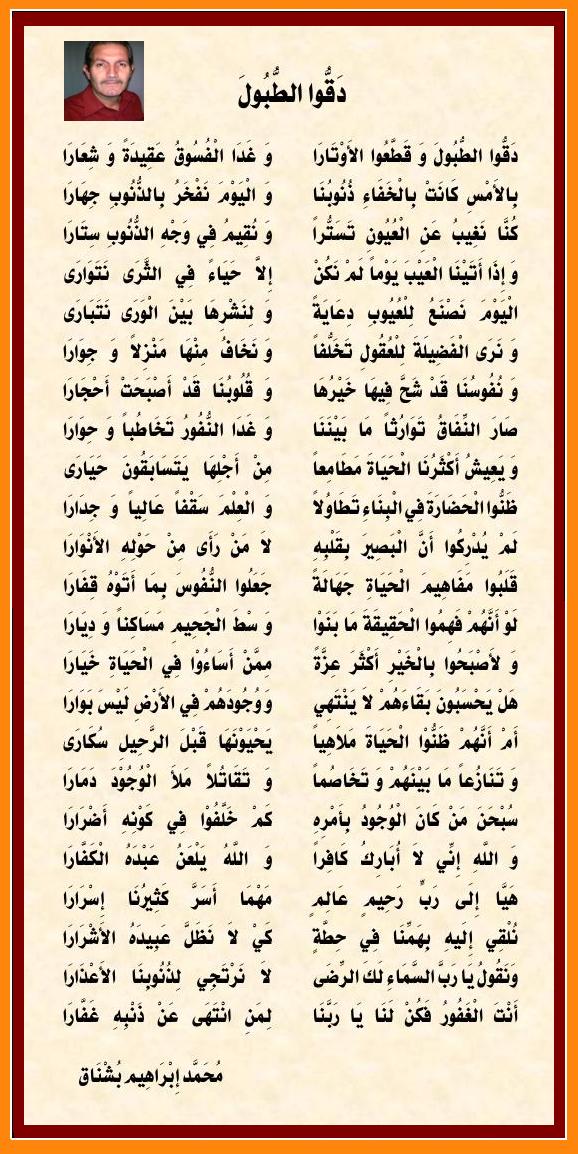 دَقُّوا الطُّبُولَ
دَقُّوا الطُّبُولَ وَ قَطَّعُوا الأَوْتَارَا وَ غَدَا الْفُسُوقُ عَقِيدَةً وَ شِعَارَا
بِالأَمْسِ كَانَتْ بِالْخَفَاءِ ذُنُوبُنَا وَ الْيَوْمَ نَفْخَرُ بِالذُّنُوبِ جِهَارَا
كُنَّا نَغِيبُ عَنِ الْعُيُونِ تَسَتُّراً وَ نُقِيمُ فِي وَجْهِ الذُّنُوبِ سِتَارَا
وَ إِذَا أَتَيْنَا الْعَيْبَ يَوْماً لَمْ نَكُنْ إِلاَّ حَيَاءً فِي الثَّرَى نَتَوَارَى
الْيَوْمَ نَصْنَعُ لِلْعُيُوبِ دِعَايَةً وَ لِنَشْرِهَا بَيْنَ الْوَرَى نَتَبَارَى
وَ نَرَى الْفَضِيلَةَ لِلْعُقُولِ تَخَلُّفاً وَ نَخَافُ مِنْهَا مَنْزِلاً وَ جِوَارَا
وَ نُفُوسُنَا قَدْ شَحَّ فِيهَا خَيْرُهَا وَ قُلُوبُنَا قَدْ أَصْبَحَتْ أَحْجَارَا
صَارَ النِّفَاقُ تَوَارُثاً مَا بَيْنَنَا وَ غَدَا النُّفُورُ تَخَاطُباً وَ حِوَارَا
وَ يَعِيشُ أَكْثَرُنَا الْحَيَاةَ مَطَامِعاً مِنْ أَجْلِهَا يَتَسَابَقُونَ حَيَارَى
ظَنُّوا الْحَضَارَةَ فِي الْبِنَاءِ تَطَاوُلاً وَ الْعِلْمَ سَقْفاً عَالِياً وَ جِدَارَا
لَمْ يُدْرِكُوا أَنَّ الْبَصِيرَ بِقَلْبِهِ لاَ مَنْ رَأَى مِنْ حَوْلِهِ الأَنْوَارَا
قَلَبُوا مَفَاهِيمَ الْحَيَاةِ جَهَالَةً جَعَلُوا النُّفُوسَ بِمَا أَتَوْهُ قِفَارَا
لَوْ أَنَّهُمْ فَهِمُوا الْحَقِيقَةَ مَا بَنَوْا وَ سْطَ الْجَحِيمِ مَسَاكِناً وَ دِيَارَا
وَ لأَصْبَحُوا بِالْخَيْرِ أَكْثَرَ عِزَّةً مِمَّنْ أَسَاءُوا فِي الْحَيَاةِ خَيَارَا
هَلْ يَحْسَبُونَ بَقَاءَهُمْ لاَ يَنْتَهِي وَ وُجُودَهُمْ فِي الأَرْضِ لَيْسَ بَوَارَا
أَمْ أَنَّهُمْ ظَنُّوا الْحَيَاةَ مَلاَهِياً يَحْيَوْنَهَا قَبْلَ الرَّحِيلِ سُكَارَى
وَ تَنَازُعاً مَا بَيْنَهُمْ وَ تَخَاصُماً وَ تَقَاتُلاً مَلأَ الْوُجُوْدَ دَمَارَا
سُبْحَنَ مَنْ كَانَ الْوُجُودُ بِأَمْرِهِ كَمْ خَلَّفُوا فِي كَوْنِهِ أَضْرَارَا
وَ اللَّهِ إِنِّي لاَ أُبَارِكُ كَافِراً وَ اللَّهُ يَلْعَنُ عَبْدَهُ الْكَفَّارَا
هَيَّا إِلَى رَبٍّ رَحِيمٍ عَالِمٍ مَهْمَا أَسَرَّ كَثِيرُنَا إِسْرَارَا
نُلْقِي إِلَيهِ بِهَمِّنَا فِي حِطَّةٍ كَيْ لاَ نَظَلَّ عَبِيدَهُ الأَشْرَارَا
وَنَقُولُ يَا رَبَّ السَّمَاءِ لَكَ الرِّضَى لاَ نَرْتَجِي لِذُنُوبِنَا الأَعْذَارَا
أَنْتَ الْغَفُورُ فَكُنْ لَنَا يَا رَبَّنَا لِمَنِ انْتَهَى عَنْ ذَنْبِهِ غَفَّارَا
مُحَمَّد إِبْرَاهِيم بُشْنَاق